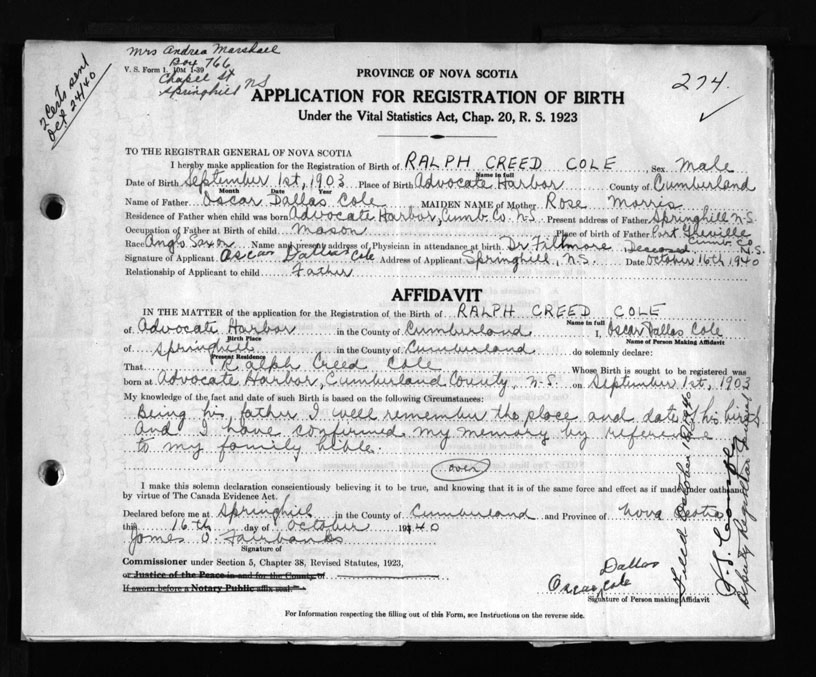 Mrs Andrea Marshall
Box 766
V. S. Form 1. 10M 1-39
Chapel St
Springhill NS
2 Certs sent
Oct 24/40
PROVINCE OF NOVA SCOTIA
274.
APPLICATION FOR REGISTRATION OF BIRTH
Under the Vital Statistics Act, Chap. 20, R. S. 1923
TO THE REGISTRAR GENERAL OF NOVA SCOTIA
I hereby make application for the Registration of Birth of RALPH CREED COLE Sex Male
Name in full
Date of Birth September 1st, 1903 Place of Birth Advocate Harbor County of Cumberland
Month Date Year
Name of Father Oscar Dallas Cole MAIDEN NAME of Mother Rose Morris
Residence of Father when child was born Advocate Harbor, Cumb. Co. N.S. Present address of Father Springhill N.S.
Occupation of Father at Birth of child Mason Place of birth of Father Port Greville
Cumb. Co N.S.
Race Anglo Saxon Name and present address of Physician in attendance at birth Dr Fillmore Deceased
Signature of Applicant Oscar Dallas Cole Address of Applicant Springhill, N.S. Date October 16th 1940
Relationship of Applicant to child Father
AFFIDAVIT
IN THE MATTER of the application for the Registration of the Birth of RALPH CREED COLE
Name in full
of Advocate Harbor in the County of Cumberland I, Oscar Dallas Cole
Birth Place
Name of Person Making Affidavit
of Springhill in the County of Cumberland do solemnly declare:
Present Residence
That Ralph Creed Cole Whose Birth is sought to be registered was
born at Advocate Harbor, Cumberland County, N.S. on September 1st, 1903
My knowledge of the fact and date of such Birth is based on the following Circumstances:
Being his father I well remember the place and date of his birth
and I have confirmed my memory by reference
to my family bible.
over
I make this solemn declaration conscientiously believing it to be true, and knowing that it is of the same force and effect as if made under oath and
by virtue of The Canada Evidence Act.
Declared before me at Springhill in the County of Cumberland and Province of Nova Scotia
this 16th day of October 1940
James O. Fairbanks
Signature of
Commissioner under Section 5, Chapter 38, Revised Statutes, 1923,
or Justice of the Peace in and for the County of
If sworn before a Notary Public affix seal.
Oscar Dallas Cole
Signature of Person making Affidavit
Filed October
Deputy Registrar General
For Information respecting the filling out of this Form, see Instructions on the reverse side.